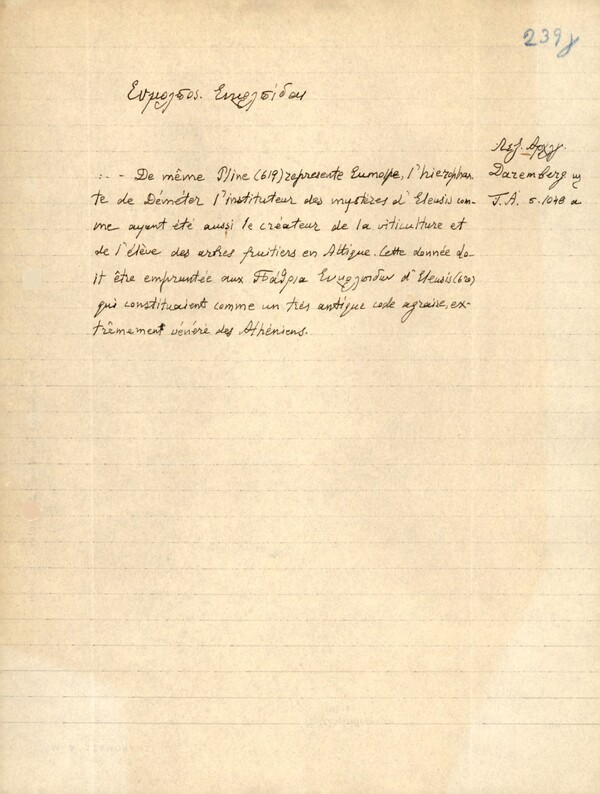 239γ
Ευμολπος. Ευμολπίδαι
Λεξ. Αρχ.
Daremberg
T.A. σ. 1048 a
:. - De même Pline (619) represente Eumolpe, l'hierophan-
te de Déméter l'instituteur des mystères d'Eleusis com-
me ayant été aussi le créateur de la viticulture et
de l'élève des arbres fruitiers en Attique. Cette donnée do-
it être empruntée aux Πάτρια Ευμολπιδων d'Eleusis (620)
qui constituaient comme un très antique code agraire, ex-
trêmement vénéré des Athéniens.